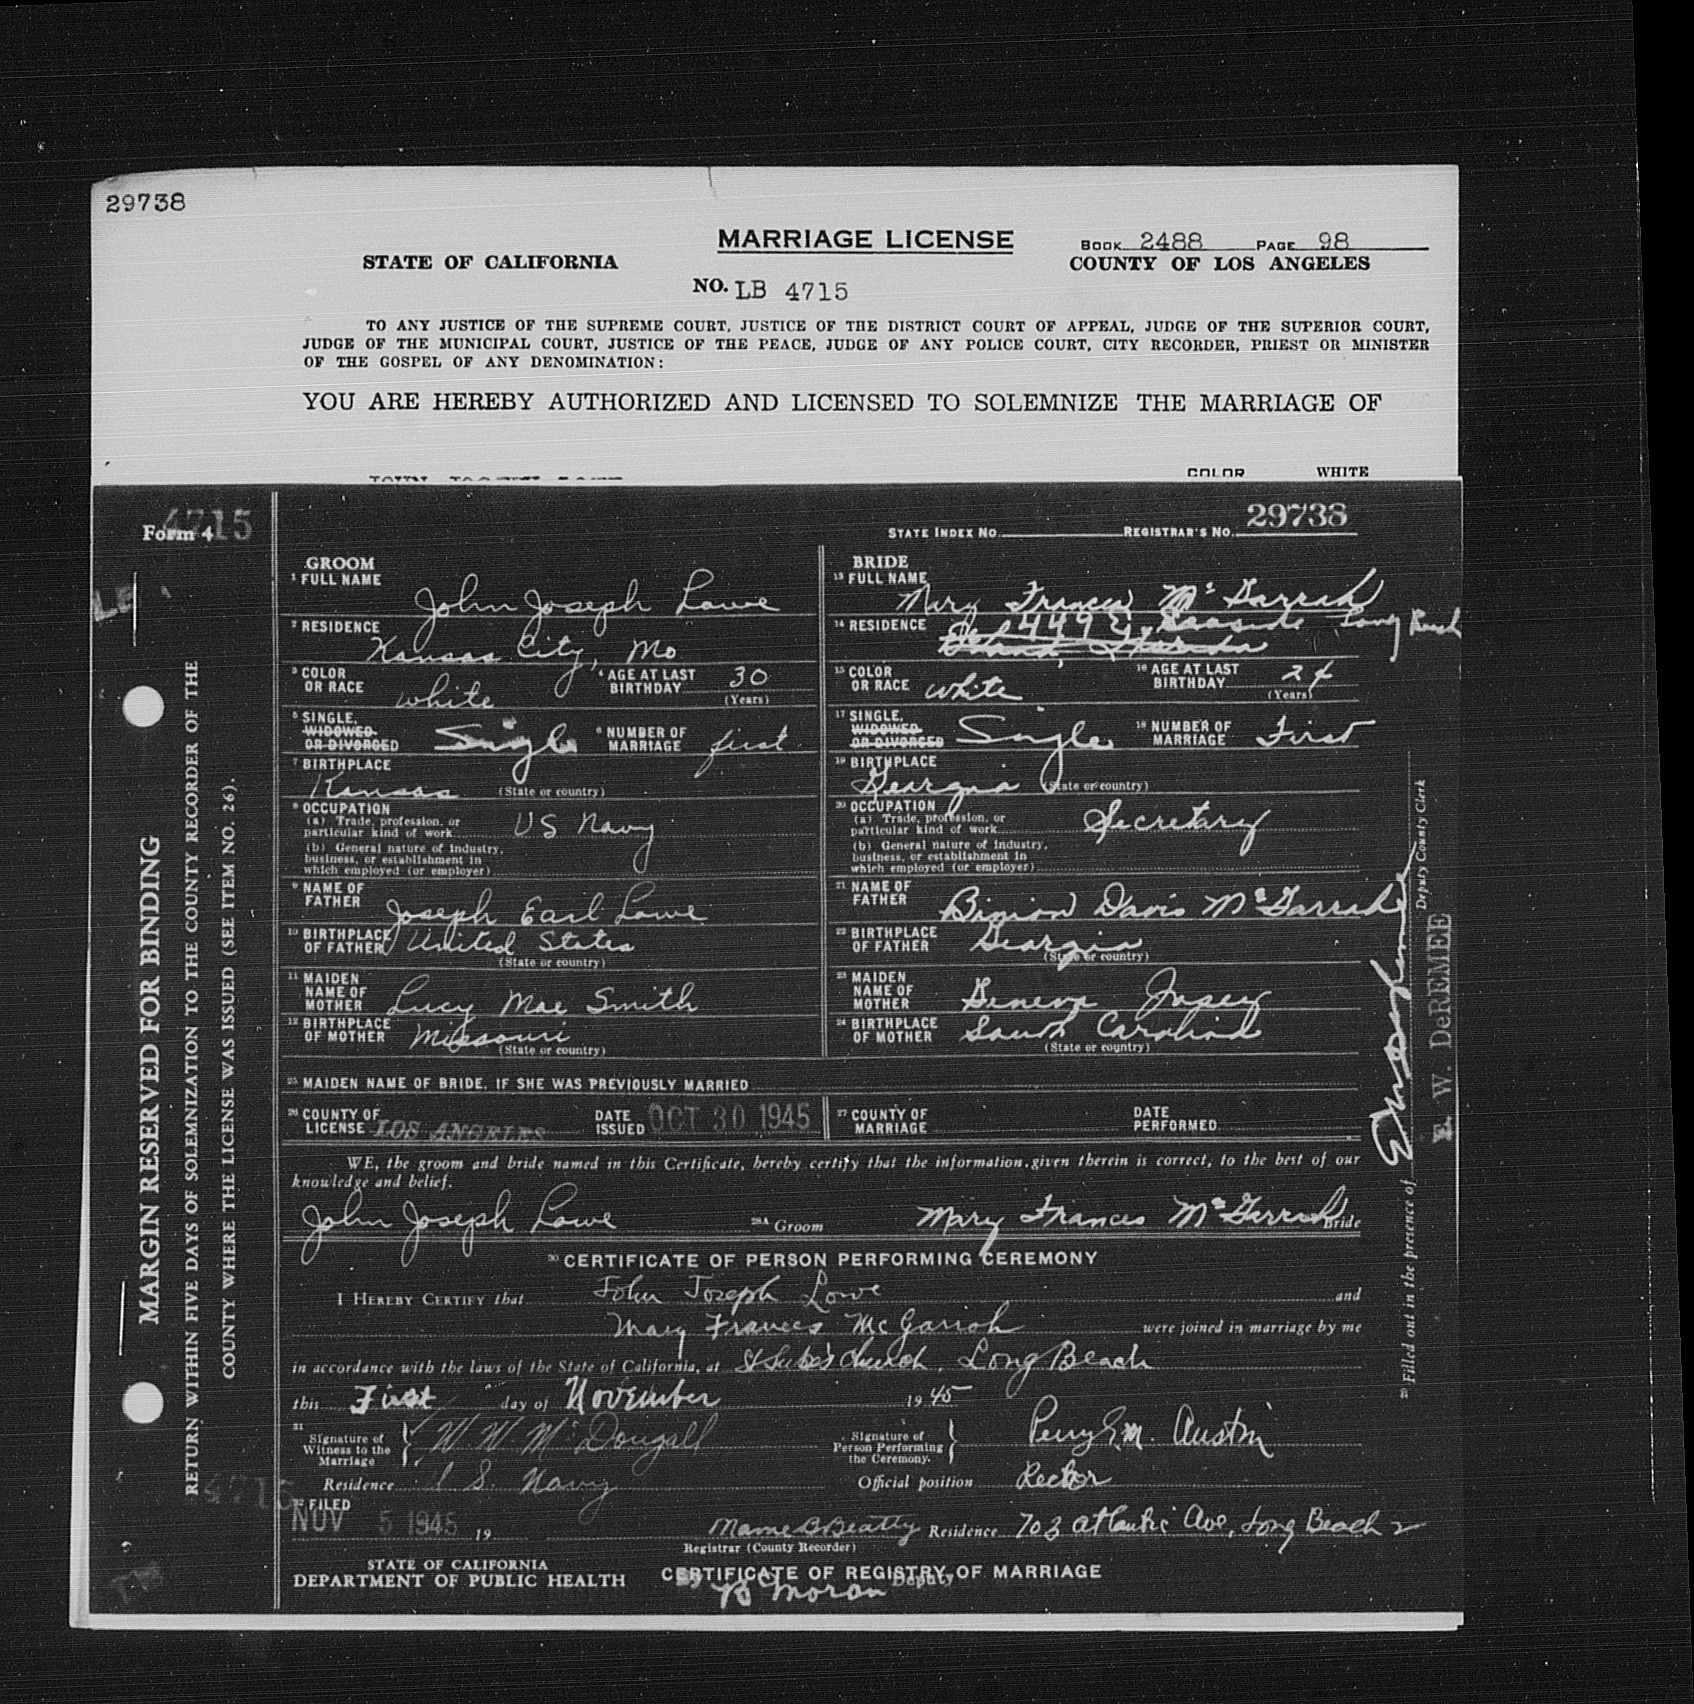 29738
MARRIAGE LICENSE
BOOK 2488 PAGE 98
STATE OF CALIFORNIA
COUNTY OF LOS ANGELES
NO. LB 4715
TO ANY JUSTICE OF THE SUPREME COURT, JUSTICE OF THE DISTRICT COURT OF APPEAL, JUDGE OF THE SUPERIOR COURT,
JUDGE OF THE MUNICIPAL COURT, JUSTICE OF THE PEACE, JUDGE OF ANY POLICE COURT, CITY RECORDER, PRIEST OR MINISTER
OF THE GOSPEL OF ANY DENOMINATION:
YOU ARE HEREBY AUTHORIZED AND LICENSED TO SOLEMNIZE THE MARRIAGE OF
COLOR WHITE
Form 4 4715
STATE INDEX NO. REGISTRAR'S NO. 29738
GROOM
1 FULL NAME John Joseph Lowe
2 RESIDENCE Kansas City, Mo
3 COLOR OR RACE white 4 AGE AT LAST BIRTHDAY 30 (Years)
5 SINGLE, WIDOWED OR DIVORCED Single 6 NUMBER OF MARRIAGE first
7 BIRTHPLACE Kansas (State or country)
8 OCCUPATION
(a) Trade, profession, or
particular kind of work US Navy
(b) General nature of industry,
business, or establishment in
which employed (or employer)
9 NAME OF FATHER Joseph Earl Lowe
10 BIRTHPLACE OF FATHER United States
(State or country)
11 MAIDEN NAME OF MOTHER Lucy Mae Smith
12 BIRTHPLACE OF MOTHER Missouri
(State or country)
BRIDE
13 FULL NAME Mary Frances McGarrah
14 RESIDENCE 449 E. Seaside Long Beach
15 COLOR OR RACE white 16 AGE AT LAST BIRTHDAY 24 (Years)
17 SINGLE, WIDOWED OR DIVORCED Single 18 NUMBER OF MARRIAGE First
19 BIRTHPLACE Georgia (State or country)
20 OCCUPATION
(a) Trade, profession, or
particular kind of work Secretary
(b) General nature of industry,
business, or establishment in
which employed (or employer)
21 NAME OF FATHER Binion Davis McGarrah
22 BIRTHPLACE OF FATHER Georgia
(State or country)
23 MAIDEN NAME OF MOTHER Geneva
24 BIRTHPLACE OF MOTHER South Carolina
(State or country)
25 MAIDEN NAME OF BRIDE, IF SHE WAS PREVIOUSLY MARRIED
26 COUNTY OF LICENSE LOS ANGELES DATE ISSUED OCT 30 1945 27 COUNTY OF MARRIAGE DATE PERFORMED
WE, the groom and bride named in this Certificate, hereby certify that the information given therein is correct, to the best of our
knowledge and belief.
John Joseph Lowe 28A Groom Mary Frances McGarrah Bride
30 CERTIFICATE OF PERSON PERFORMING CEREMONY
I HEREBY CERTIFY that John Joseph Lowe and
Mary Frances McGarrah were joined in marriage by me
in accordance with the laws of the State of California, at St Luke's Church, Long Beach
this First day of November 1945
31 Signature of Witness to the Marriage W. W. McDougall
Signature of Person Performing the Ceremony. Perry G. M. Austin
Residence U S. Navy Official position Rector
32 FILED
NOV 5 1945 19 Mame B Beatty Residence 703 Atlantic Ave, Long Beach 2
Registrar (County Recorder)
STATE OF CALIFORNIA
DEPARTMENT OF PUBLIC HEALTH
CERTIFICATE OF REGISTRY OF MARRIAGE
By B Moran Deputy
MARGIN RESERVED FOR BINDING
RETURN WITHIN FIVE DAYS OF SOLEMNIZATION TO THE COUNTY RECORDER OF THE
COUNTY WHERE THE LICENSE WAS ISSUED (SEE ITEM NO. 26).
4715
29 Filled out in the presence of Deputy County Clerk
E. W. DeREMEE